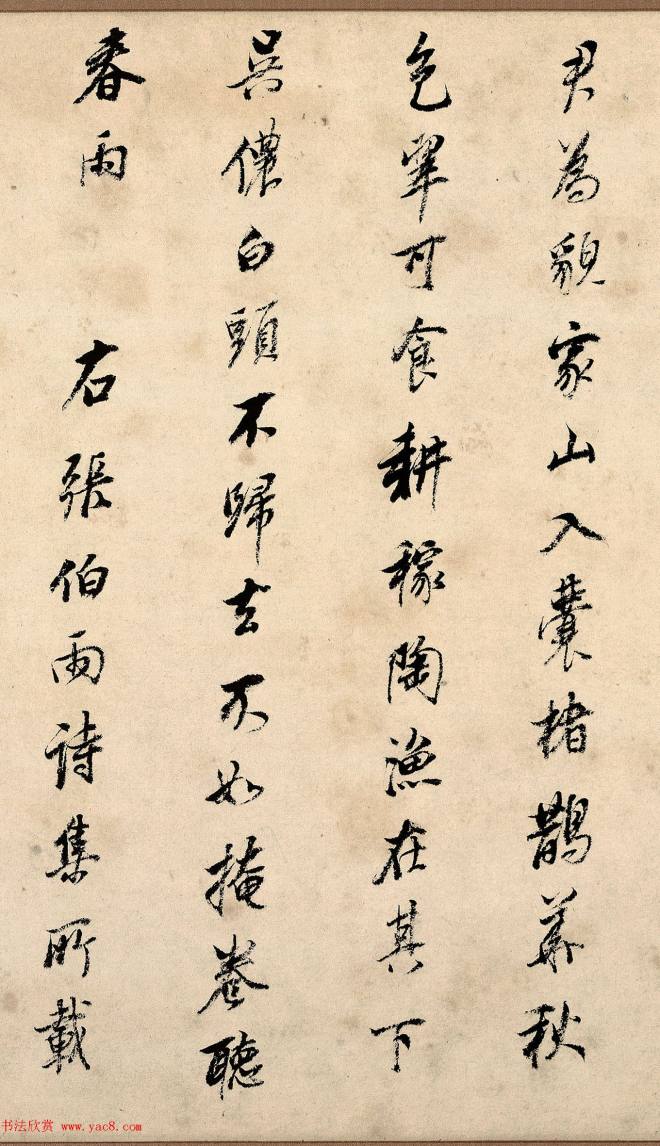 君為貌家山入囊楮鵲華秋
色翠可食耕稼陶漁在其下
吳儂白頭不歸去不如掩卷聽
春雨 右張伯雨詩集所載
书法欣赏 www.yac8.com